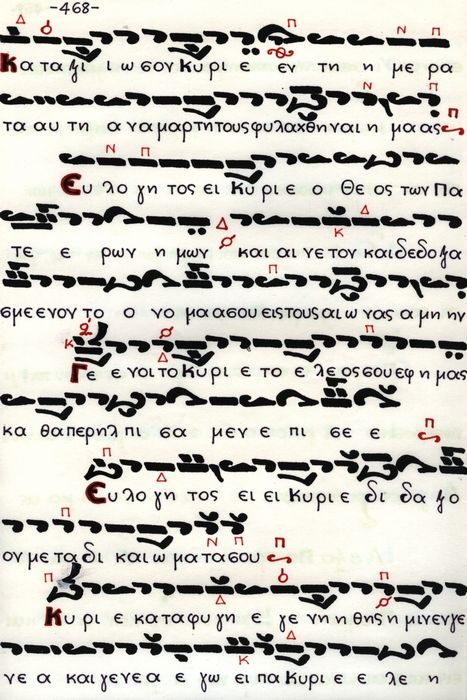 -468-
Κα τα ξι ι ω σον Κυ ρι ε εν τη η με ρα
τα αυ τη α να μαρ τη τους φυ λα χθη ναι η μα ας
Ευ λο γη τος ει Κυ ρι ε ο Θε ος των Πα
τε ε ρων η μων και αι νε τον και δε δο ξα
σμε ε νον το ο νο μα α σου εις τους αι ω νας α μη ην
Γε ε νοι το Κυ ρι ε το ε λε ος σου εφ η μας
κα θα περ ηλ πι σα μεν ε πι σε ε
Ευ λο γη τος ει ει Κυ ρι ε δι δα ξο
ον με τα δι και ω μα τα σου
Κυ ρι ε κα τα φυ γη ε γε νη η θης η μιν εν γε
νε α και γε νε α ε γω ει πα Κυ ρι ε ε λε η